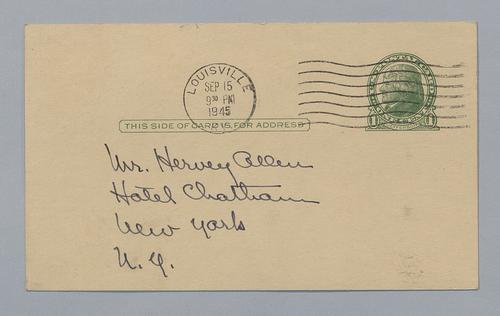 LOUISVILLE
SEP 15
9 30 PM
1945
KY.
THIS SIDE OF CARD IS FOR ADDRESS
1 1
Mr. Hervey Allen
Hotel Chatham
New York
N. Y.